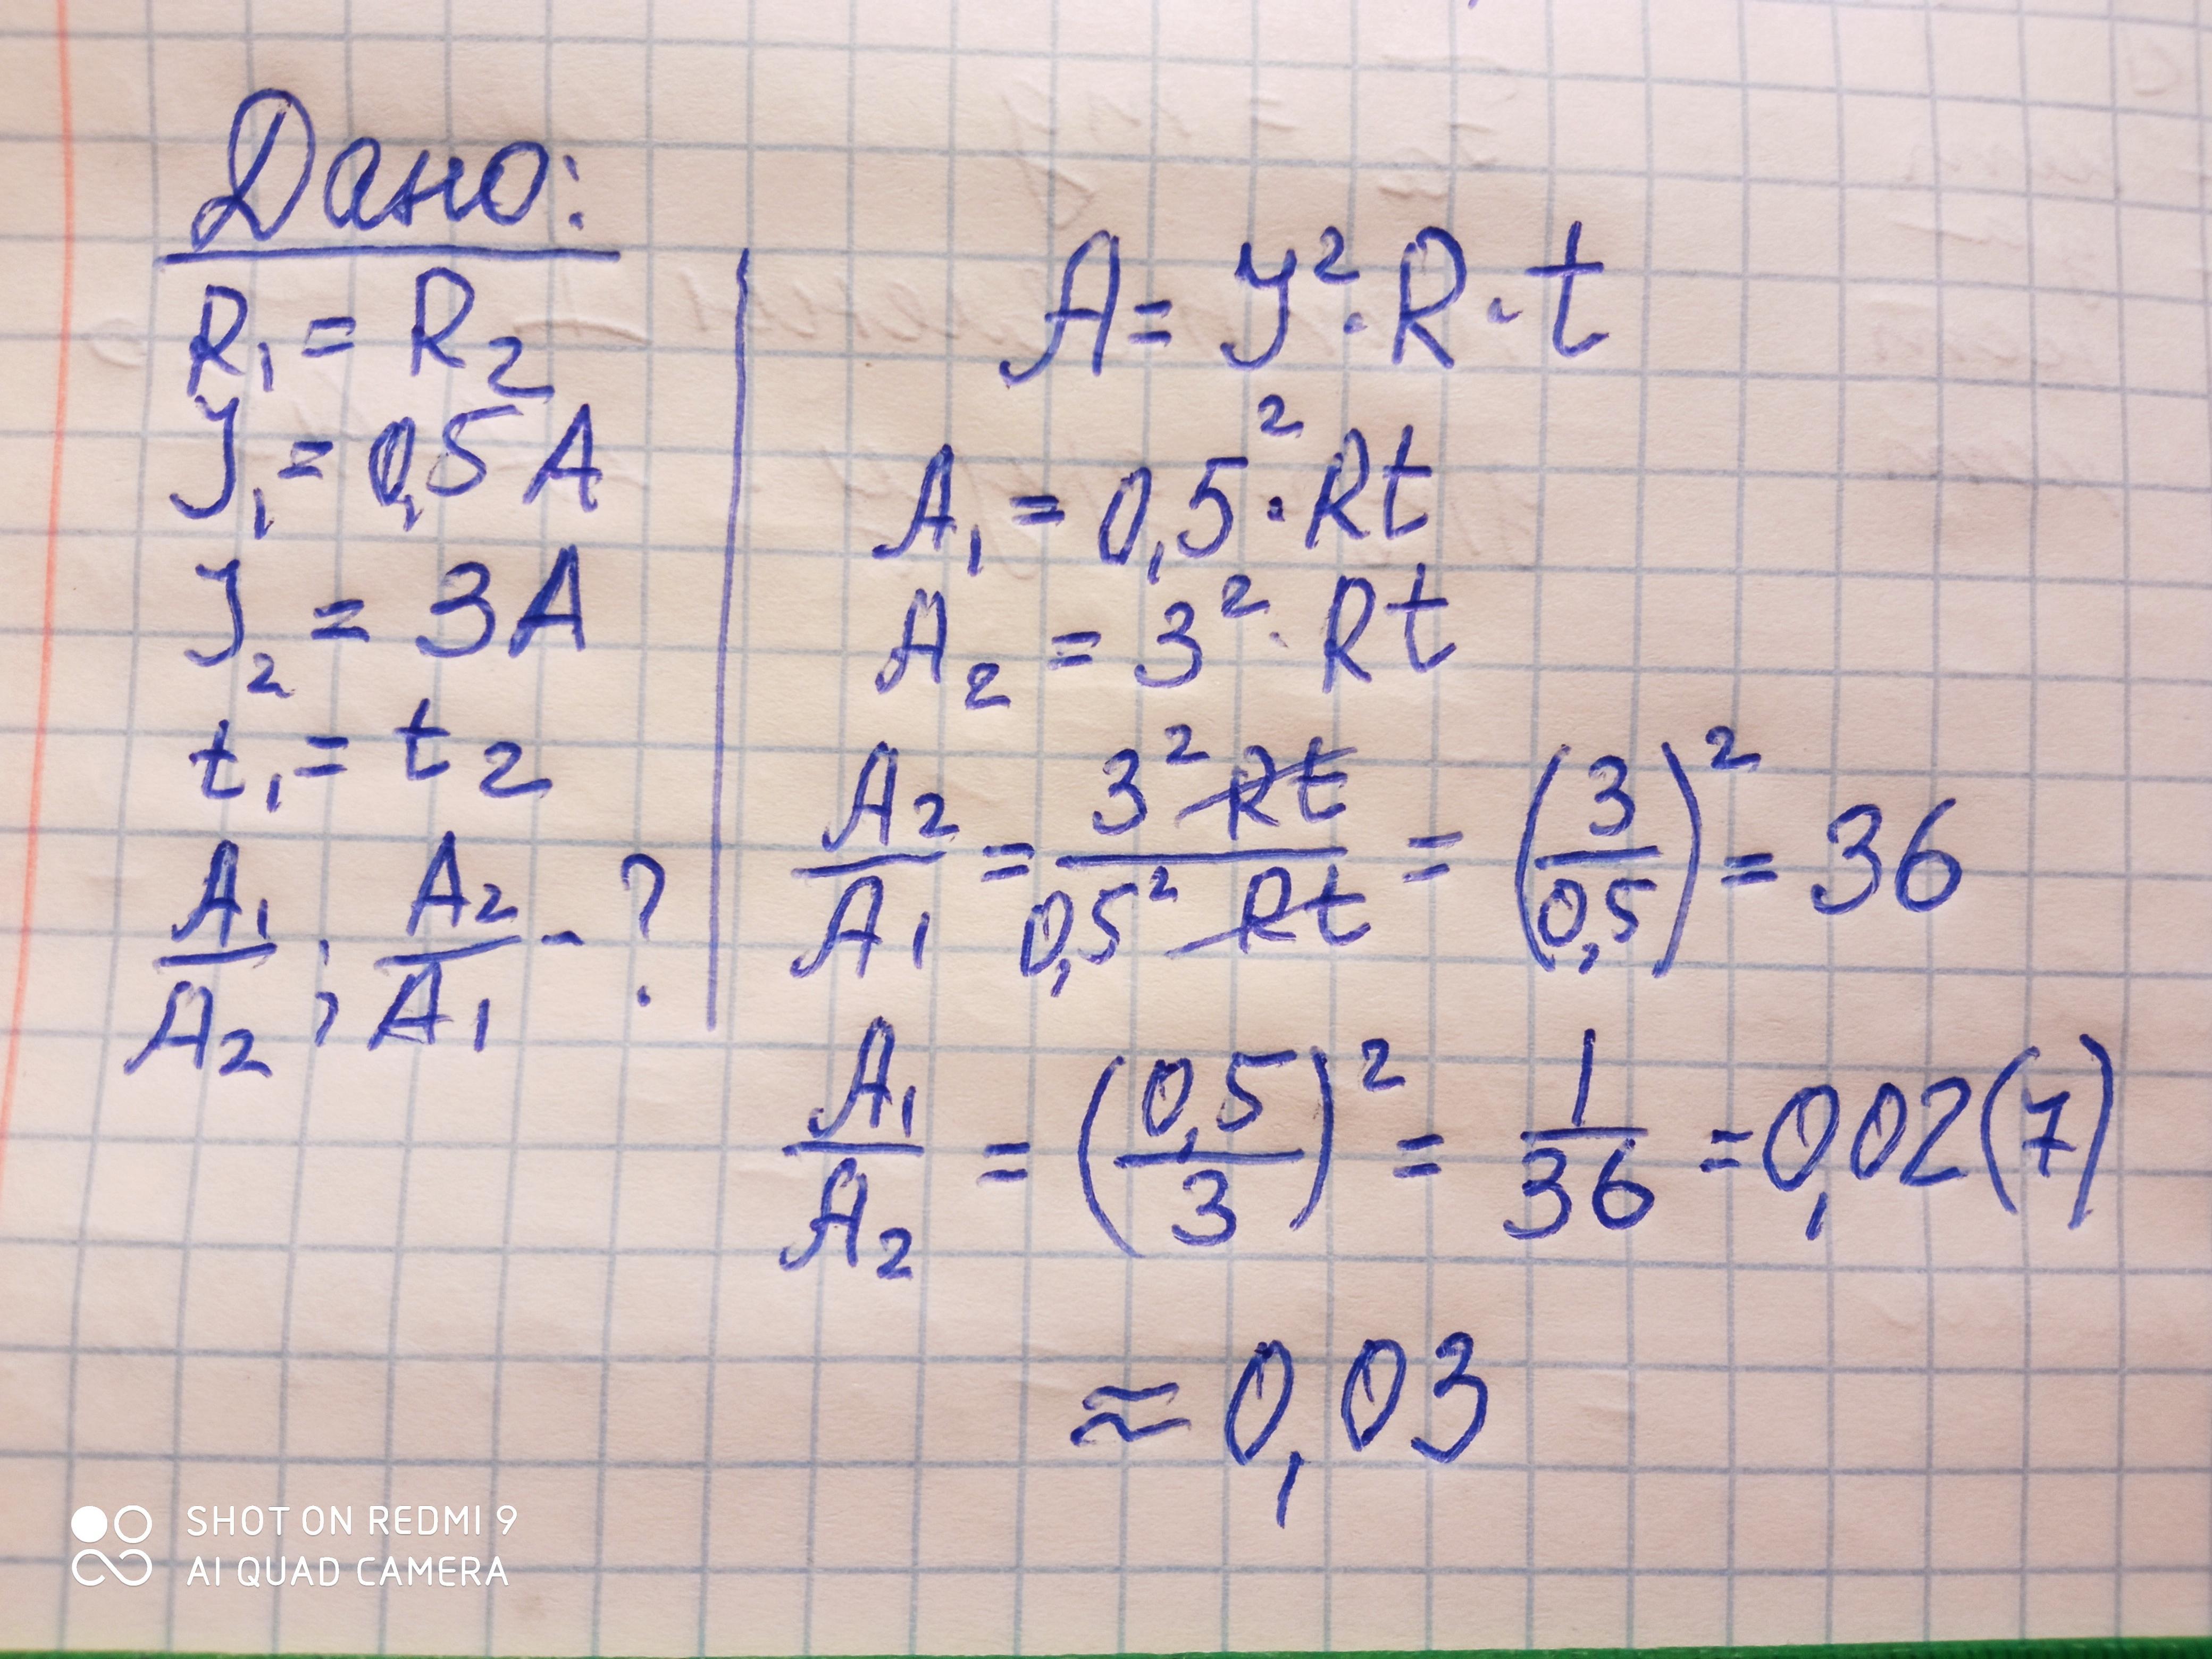 Дано:
R₁ = R₂
I₁ = 0,5 A
I₂ = 3A
t₁ = t₂
A₁/A₂ ; A₂/A₁ - ?
A = I² · R · t
A₁ = 0,5² · Rt
A₂ = 3² · Rt
A₂/A₁ = 3² Rt / 0,5² Rt = (3/0,5)² = 36
A₁/A₂ = (0,5/3)² = 1/36 = 0,02(7)
≈ 0,03
SHOT ON REDMI 9
AI QUAD CAMERA